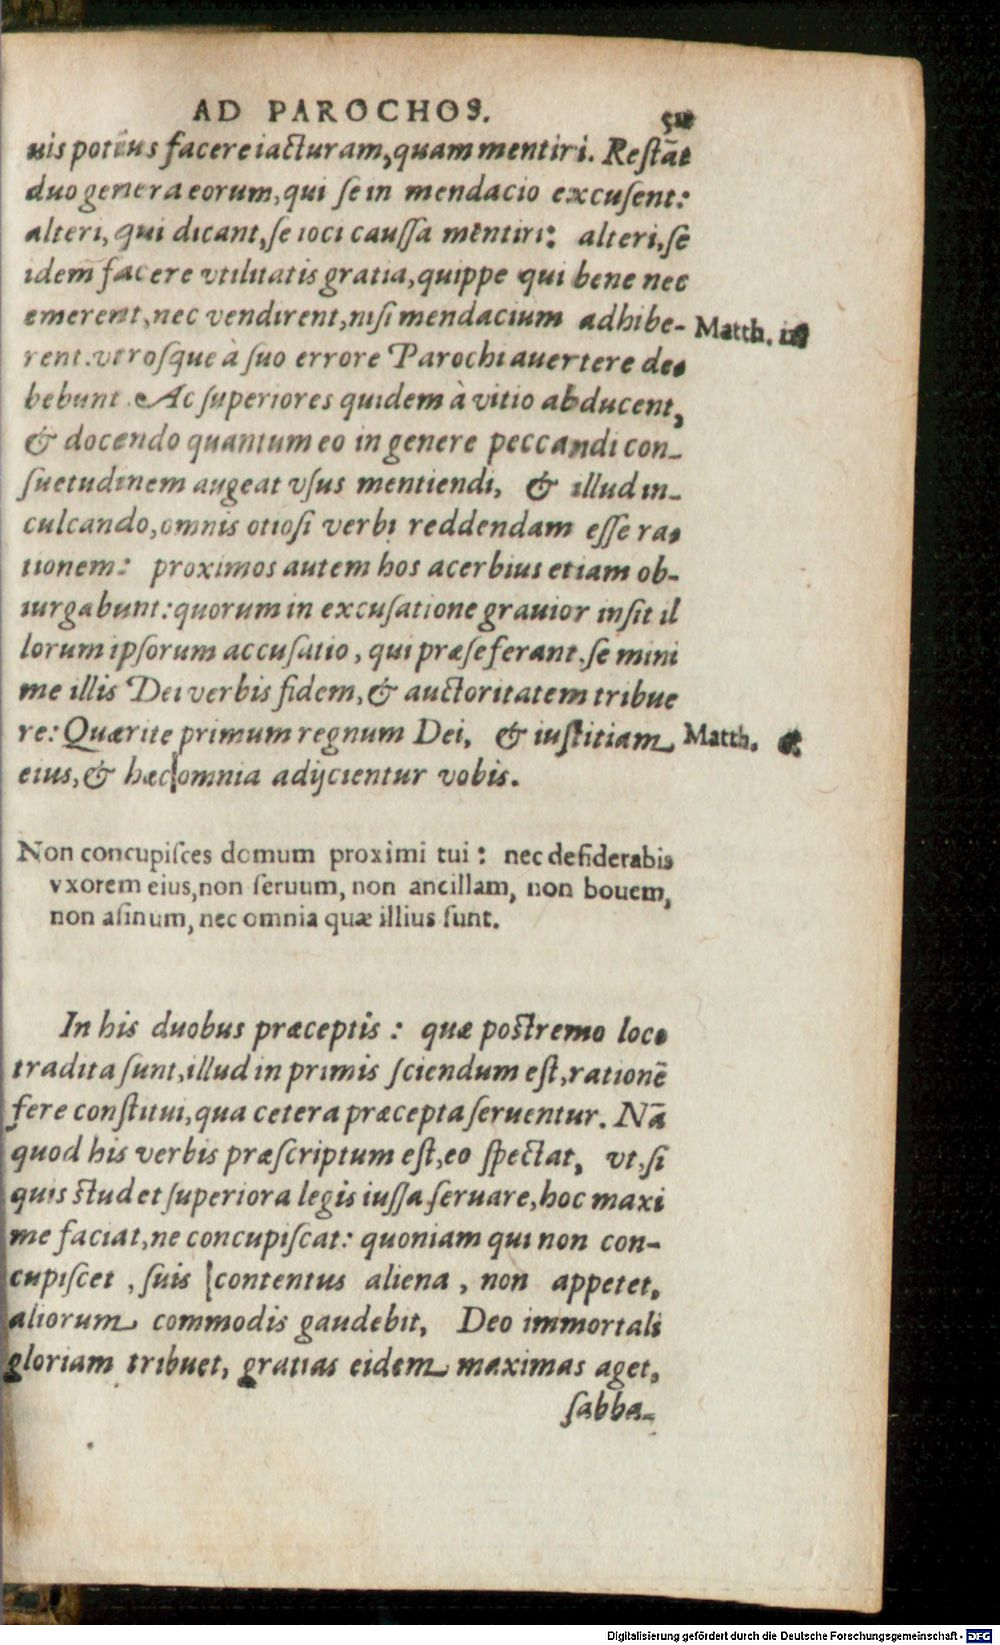 AD PAROCHOS.
uis potius facere iacturam, quam mentiri. Restāt
duo genera eorum, qui se in mendacio excusent:
alteri, qui dicant, se ioci caussa mentiri: alteri, se
idem facere vtilitatis gratia, quippe qui bene nec
emerent, nec vendirent, nisi mendacium adhibe-
Matth.
rent. vtrosque à suo errore Parochi auertere de-
bebunt. Ac superiores quidem à vitio abducent,
& docendo quantum eo in genere peccandi con-
suetudinem augeat vsus mentiendi, & illud in-
culcando, omnis otiosi verbi reddendam esse ra-
tionem: proximos autem hos acerbius etiam ob-
iurgabunt: quorum in excusatione grauior insit il
lorum ipsorum accusatio, qui præseferant, se mini
me illis Dei verbis fidem, & auctoritatem tribue
re: Quærite primum regnum Dei, & iustitiam
Matth.
eius, & hæc omnia adijcientur vobis.
Non concupisces domum proximi tui: nec desiderabis
vxorem eius, non seruum, non ancillam, non bouem,
non asinum, nec omnia quæ illius sunt.
In his duobus præceptis: quæ postremo loco
tradita sunt, illud in primis sciendum est, rationē
fere constitui, qua cetera præcepta seruentur. Nā
quod his verbis præscriptum est, eo spectat, vt, si
quis studet superiora legis iussa seruare, hoc maxi
me faciat, ne concupiscat: quoniam qui non con-
cupiscet, suis contentus aliena, non appetet,
aliorum commodis gaudebit, Deo immortali
gloriam tribuet, gratias eidem maximas aget,
sabba-
Digitalisierung gefördert durch die Deutsche Forschungsgemeinschaft - DFG